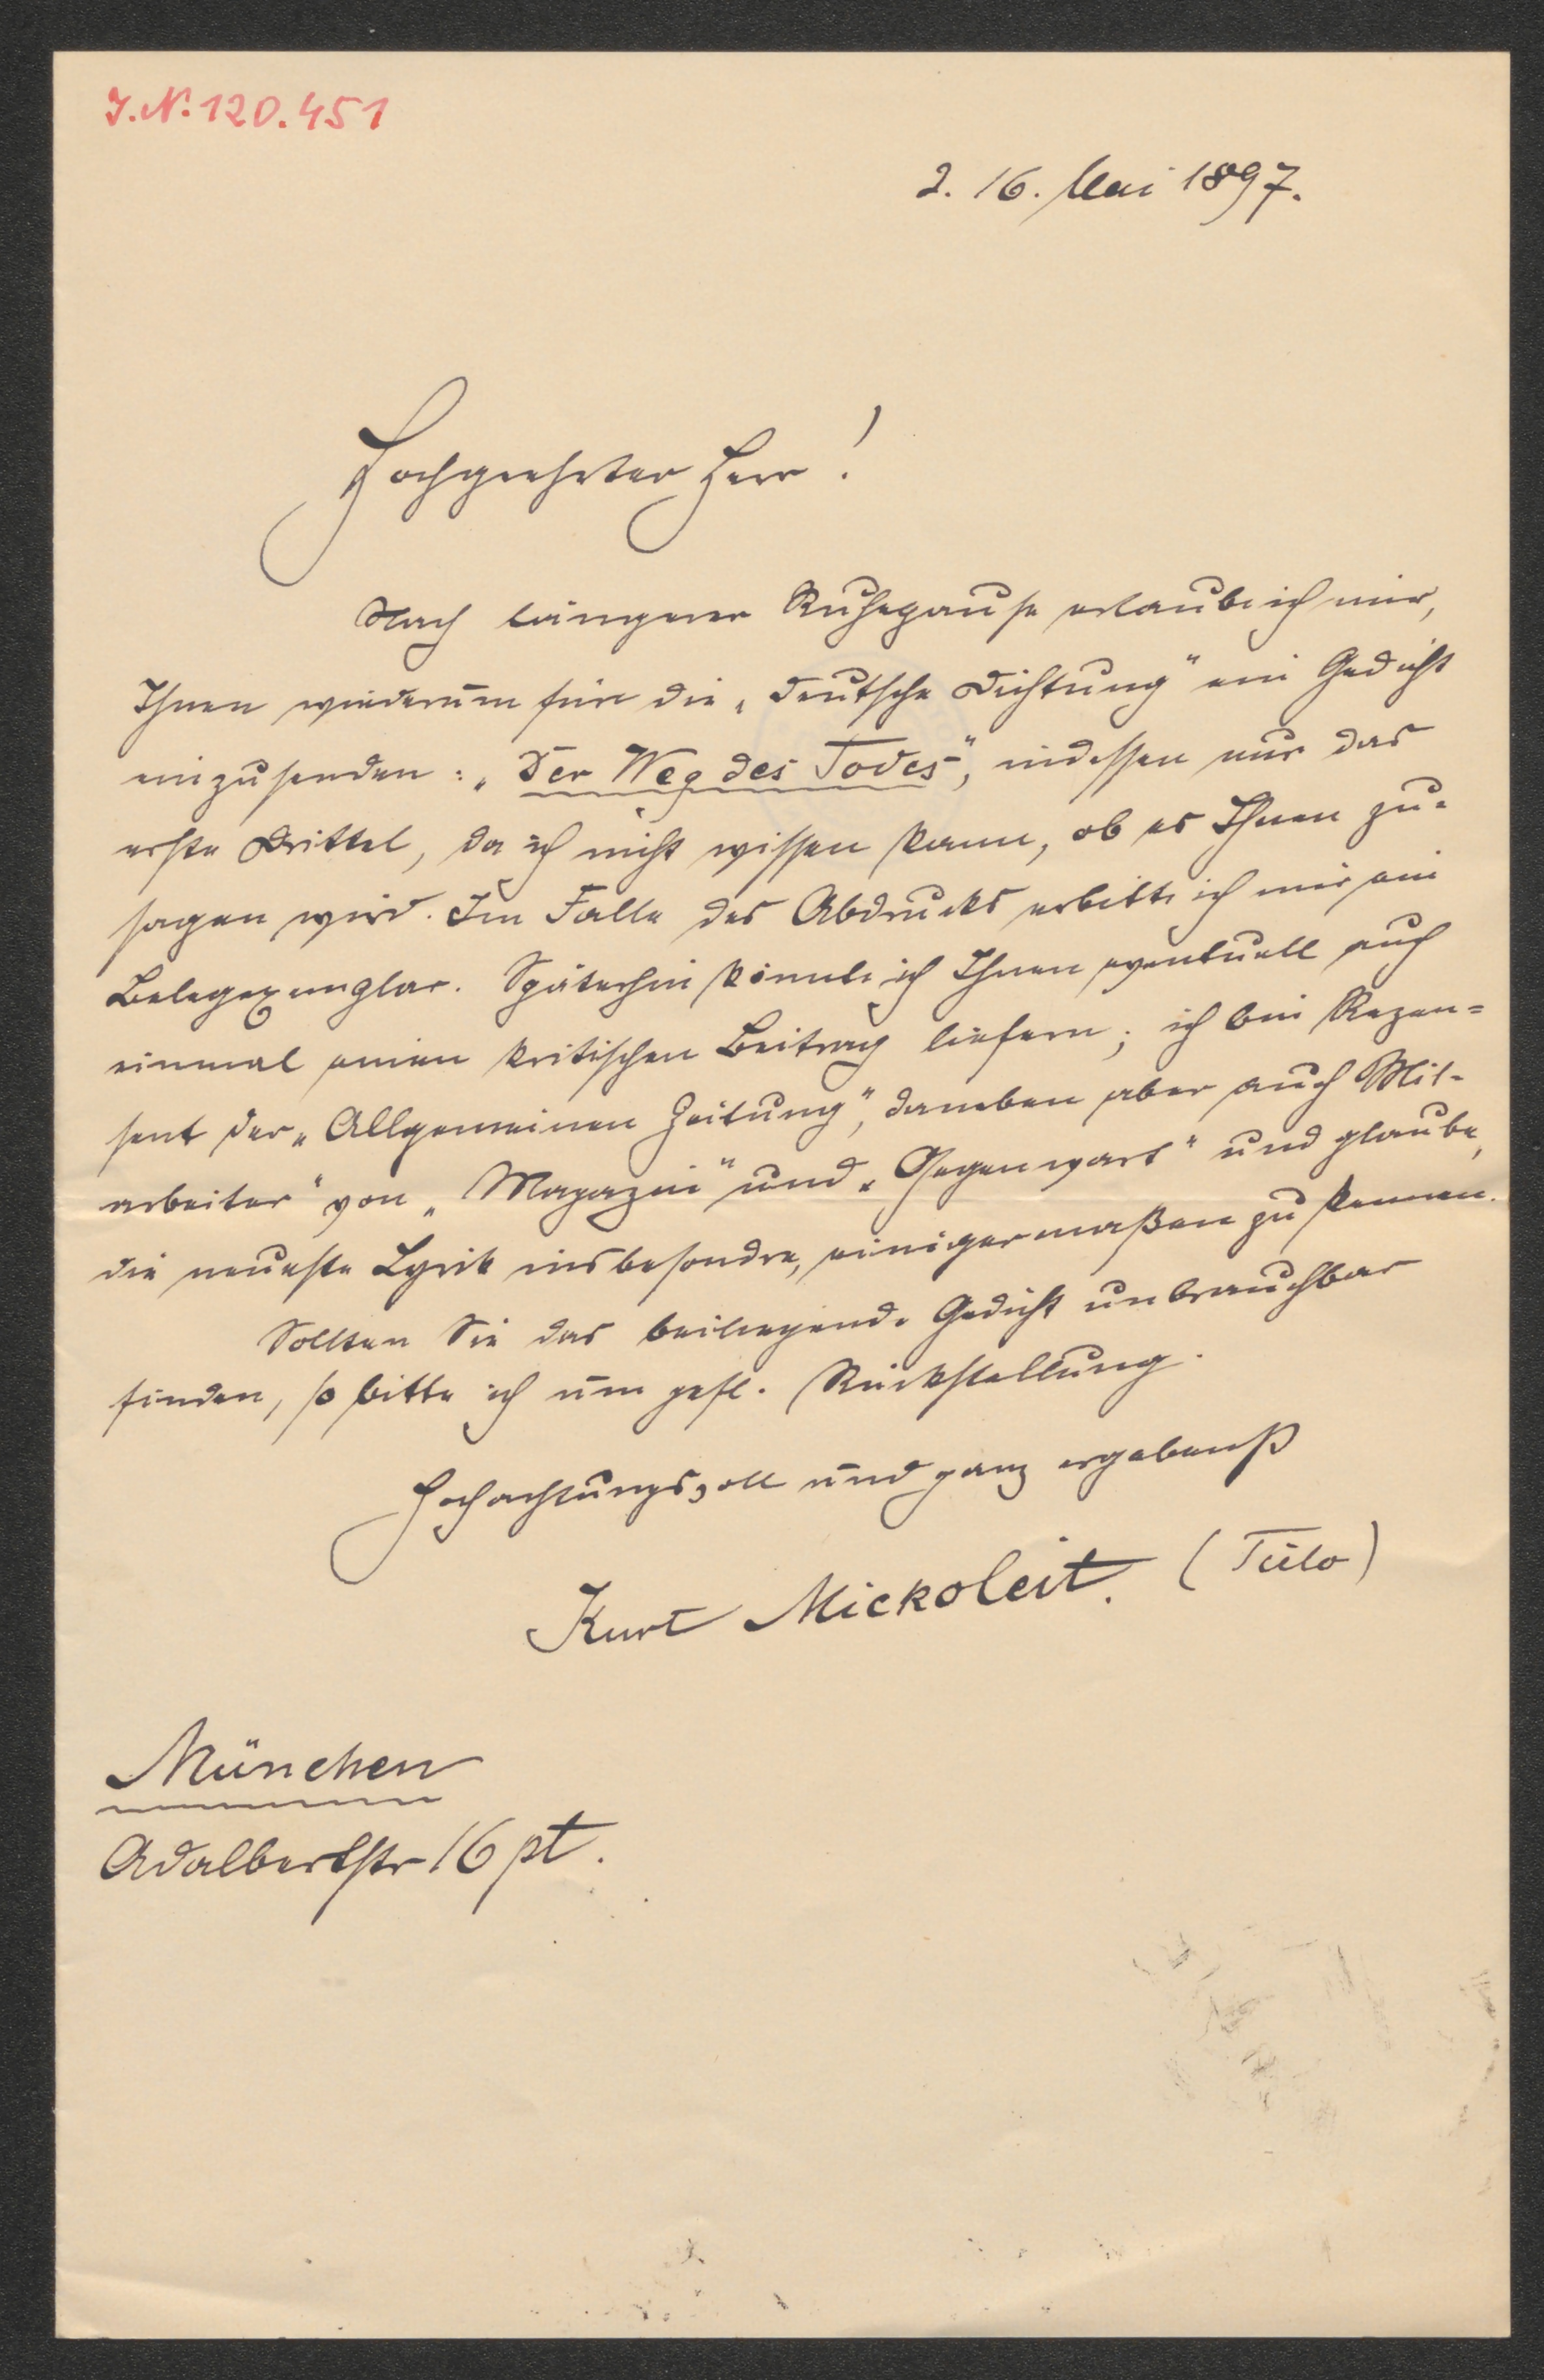 J.N. 120.451
d. 16. Mai 1897.
Hochgeehrter Herr!
Nach längerer Ruhepause erlaube ich mir,
Ihnen wiederum für die „Deutsche Dichtung“ ein Gedicht
einzusenden: „Der Weg des Todes“, indessen nur das
erste Drittel, da ich nicht wissen kann, ob es Ihnen zu-
sagen wird. Im Falle des Abdrucks erbitte ich mir ein
Belegexemplar. Späterhin könnte ich Ihnen eventuell auch
einmal einen kritischen Beitrag liefern; ich bin Rezen=
sent der „Allgemeinen Zeitung“, daneben aber auch Mit-
arbeiter“ von „Magazin“ und „Gegenwart“ und glaube,
die neueste Lyrik insbesondre, einigermaßen zu kennen.
Sollten Sie das beiliegende Gedicht unbrauchbar
finden, so bitte ich um gefl. Rückstellung.
Hochachtungsvoll und ganz ergebenst
Kurt Mickoleit. (Tielo)
München
Adalbertstr 16 pt.